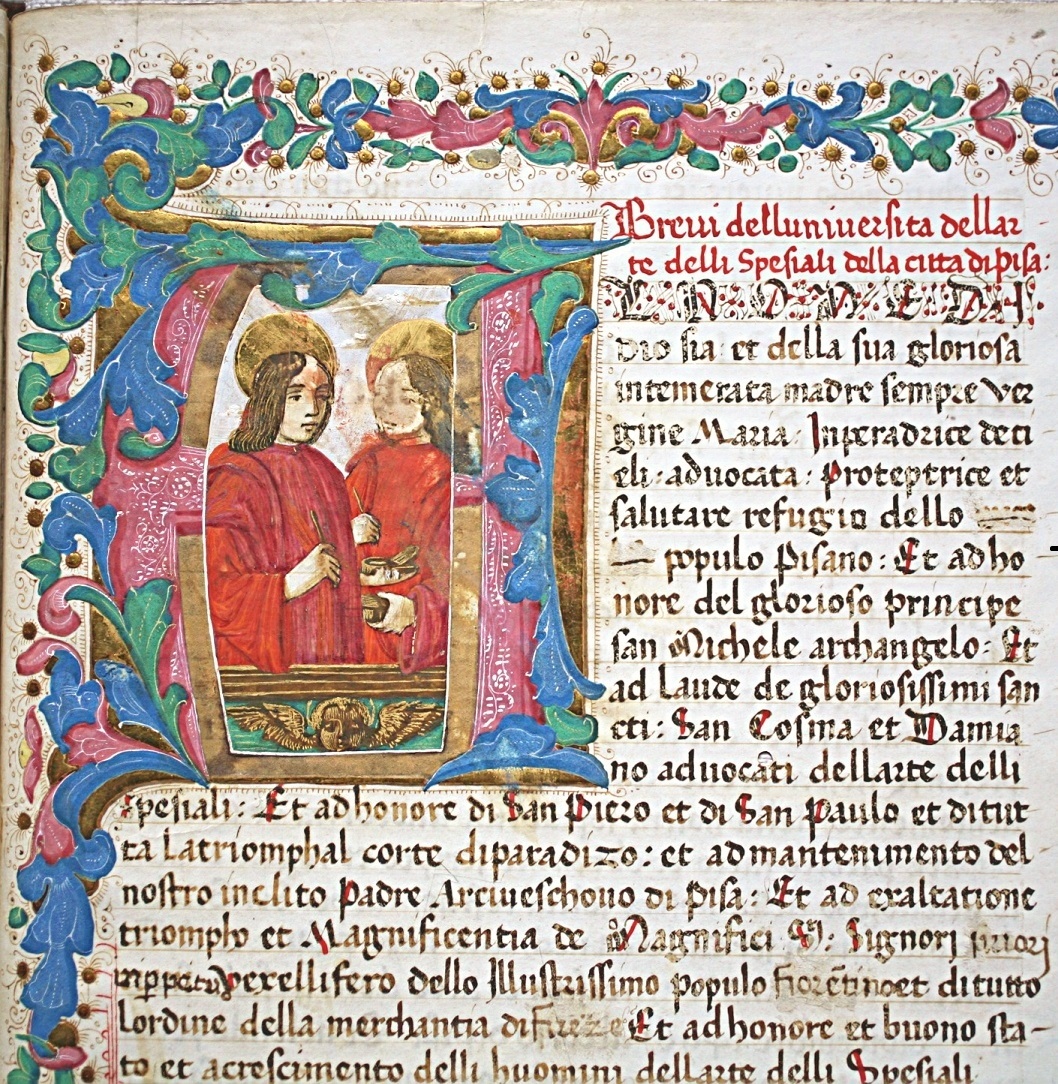 Brevi delluniversita dellar
te delli Spesiali della citta di Pisa:
L NOMED
dio sia: et della sua gloriosa
intemerata madre sempre ver
gine Maria: Inperadrice deci
eli: advocata: proteptrice et
salutare refugio dello
populo Pisano: Et ad ho
nore del glorioso principe
san Michele archangelo: Et
ad laude de gloriosissimi san
cti: San Cosma et Damia
no advocati dellarte delli
spesiali: Et ad honore di San Piero et di San Paulo et ditut
ta latriomphal corte diparadizo: et ad mantenimento del
nostro inclito Padre Arciveschovo di Pisa: Et ad exaltatione
triompho et Magnificentia de Magnifici S: Signorj priorj
vexellifero dello Illustrissimo populo fiorẽtino et di tutto
lordine della merchantia di firẽze Et ad honore et buono sta-
to et acrescimento delli huomini dellarte delli Spesiali